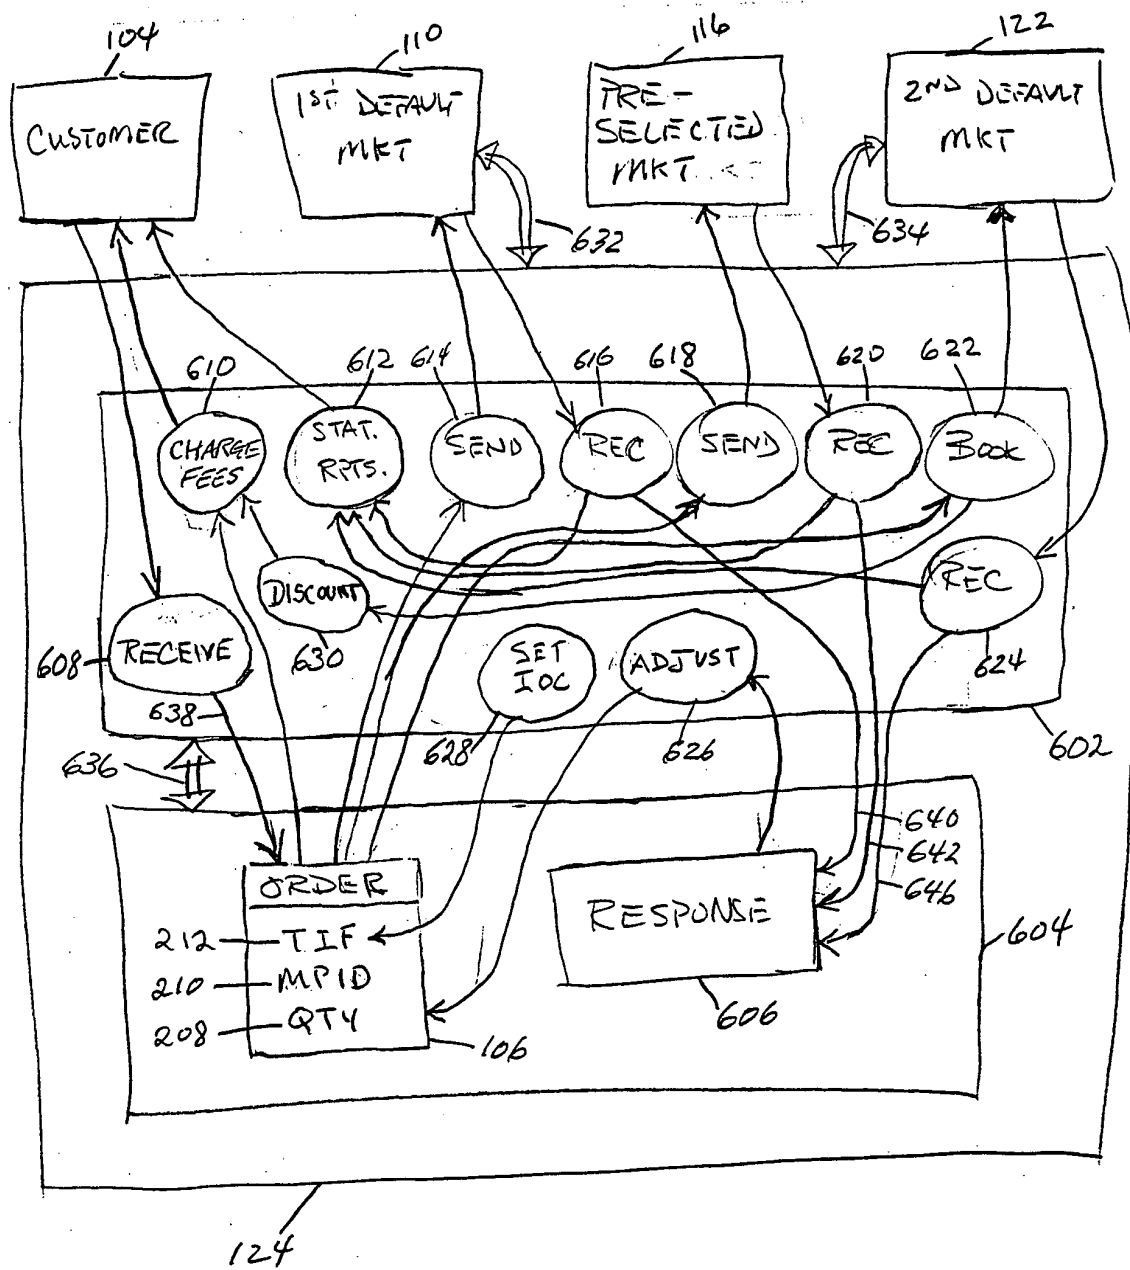 104
110
116
122
CUSTOMER
1ST DEFAULT
MKT
PRE-
SELECTED
MKT
2ND DEFAULT
MKT
632
634
610
612
614
616
618
620
622
CHARGE
FEES
STAT.
RPTS.
SEND
REC
SEND
REC
BOOK
DISCOUNT
REC
RECEIVE
608
630
SET
IOC
ADJUST
624
638
628
626
602
636
640
642
646
ORDER
212
TIF
210
MPID
208
QTY
106
RESPONSE
606
604
124